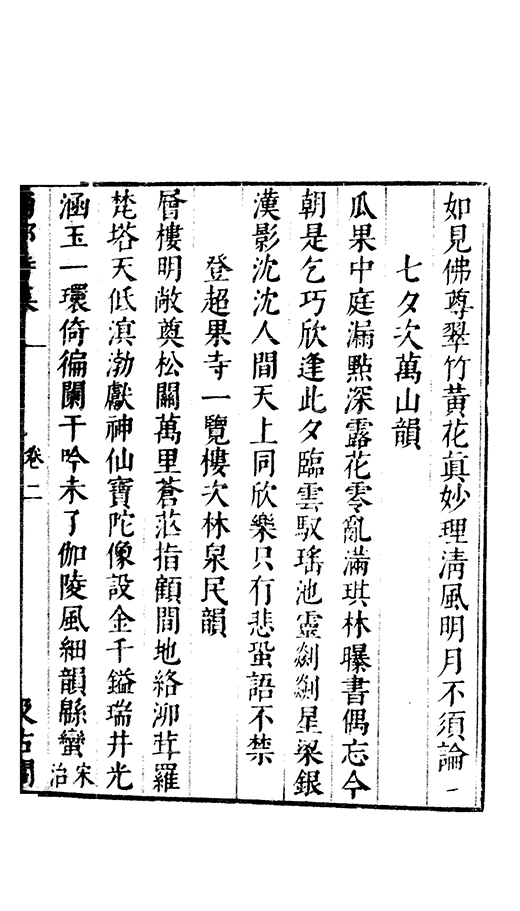 如見佛尊翠竹黃花眞妙理淸風明月不須論一
七夕次萬山韻
瓜果中庭漏點深露花零亂滿琪林曝書偶忘今
朝是乞巧欣逢此夕臨雲馭瑤池靈剡剡星梁銀
漢影沈沈人間天上同欣樂只有悲蛩語不禁
登超果寺一覽樓次林泉民韻
層樓明敞奠松關萬里蒼茫指顧間地絡泖茸羅
梵塔天低溟渤獻神仙寶陀像設金千鎰瑞井光
涵玉一環倚徧闌干吟未了伽陵風細韻緜蠻宋治
集一
卷二
汲古閣